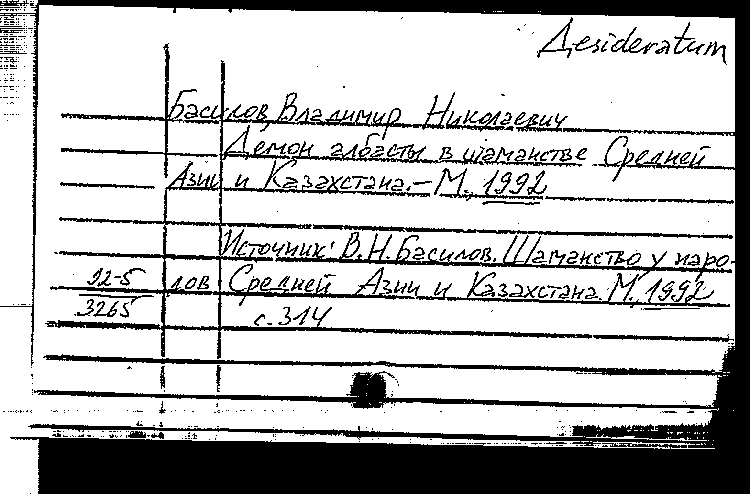 Desideratum
Басилов, Владимир Николаевич
Демон албасты в шаманстве Средней
Азии и Казахстана.—М., 1992
Источник: В.Н.Басилов. Шаманство у наро-
92-5 дов Средней Азии и Казахстана. М., 1992
3265 с.314